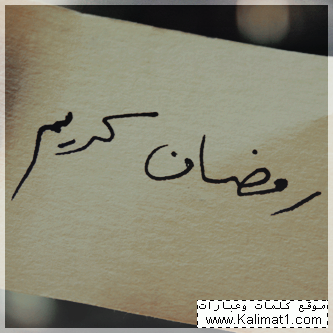 رمضان كريم
موقع كلمات وعبارات
www.Kalimat1.com